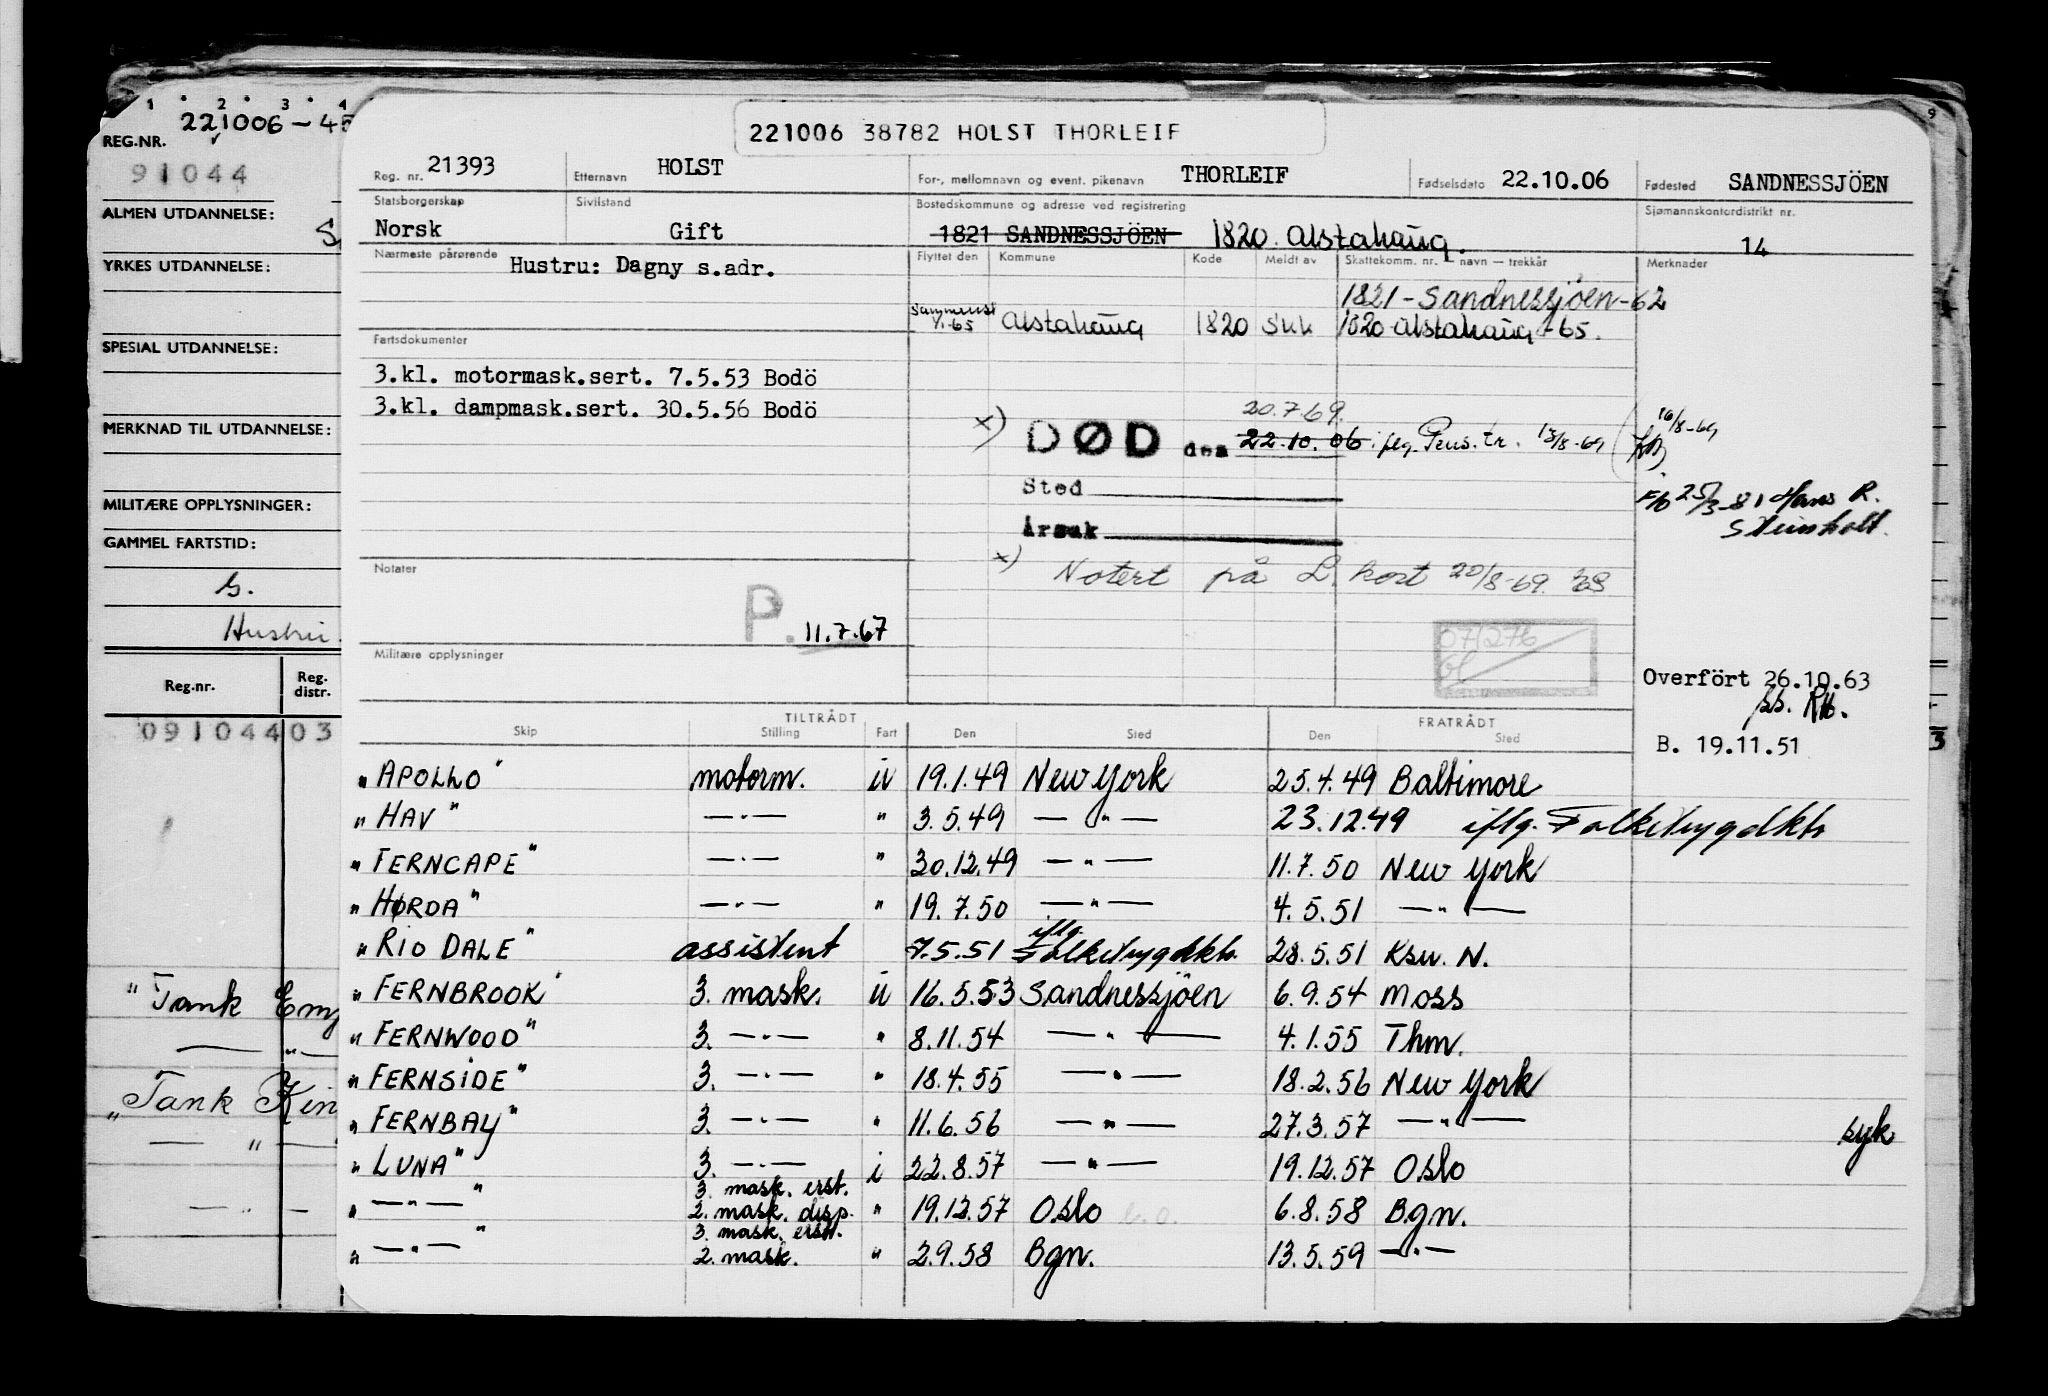 1 · 2 · 3 · 4
9
REG.NR. 221006-45
91044
ALMEN UTDANNELSE:
YRKES UTDANNELSE:
SPESIAL UTDANNELSE:
MERKNAD TIL UTDANNELSE:
MILITÆRE OPPLYSNINGER:
GAMMEL FARTSTID:
G.
Hustru.
Reg.nr. Reg. distr.
09104403
"Tank Emp
— " —
"Tank Kin
— " —
— " —
221006 38782 HOLST THORLEIF
Reg. nr. 21393 Etternavn HOLST For-, mellomnavn og event. pikenavn THORLEIF Fødselsdato 22.10.06 Fødested SANDNESSJÖEN
Statsborgerskap Sivilstand Bostedskommune og adresse ved registrering Sjømannskontordistrikt nr.
Norsk Gift 1821 SANDNESSJÖEN 1820. Alstahaug. 14
Nærmeste pårørende Hustru: Dagny s.adr. Flyttet den Kommune Kode Meldt av Skattekomm. nr. – navn – trekkår Merknader
1821 - Sandnessjöen - 62
Sammensl 1/1-65 Alstahaug 1820 Skk 1820 Alstahaug - 65.
Fartsdokumenter
3.kl. motormask.sert. 7.5.53 Bodö
3.kl. dampmask.sert. 30.5.56 Bodö
20.7.69.
x) DØD den 22.10.06 iflg. Pens.tr. 13/8-69 16/8-69
Sted
Årsak
F/b 25/3-81 Hans R.
Steinholt.
x) Notert på L. kort 20/8-69.
Notater
P. 11.7.67
07/276
Militære opplysninger
Overfört 26.10.63
B. 19.11.51
TILTRÅDT FRATRÅDT
Skip Stilling Fart Den Sted Den Sted
"APOLLO" motorm. u 19.1.49 New York 25.4.49 Baltimore
"HAV" — " — " 3.5.49 — " — 23.12.49 iflg. Folketrygdkto
"FERNCAPE" — " — " 30.12.49 — " — 11.7.50 New York
"HØRDA" — " — " 19.7.50 — " — 4.5.51 — " —
"RIO DALE" assistent 7.5.51 iflg. Folketrygdkto. 28.5.51 Ksu. N.
"FERNBROOK" 3. mask. u 16.5.53 Sandnessjöen 6.9.54 Moss
"FERNWOOD" 3. — " — " 8.11.54 — " — 4.1.55 Thm.
"FERNSIDE" 3. — " — " 18.4.55 — " — 18.2.56 New York
"FERNBAY" 3. — " — " 11.6.56 — " — 27.3.57 — " — syk
"LUNA" 3. — " — i 22.8.57 — " — 19.12.57 Oslo
" — " — " 3. mask. erst. 2. mask. disp. " 19.12.57 Oslo 6.8.58 Bgn.
" — " — " 3. mask. erst. 2. mask. " 2.9.58 Bgn. 13.5.59 — " —